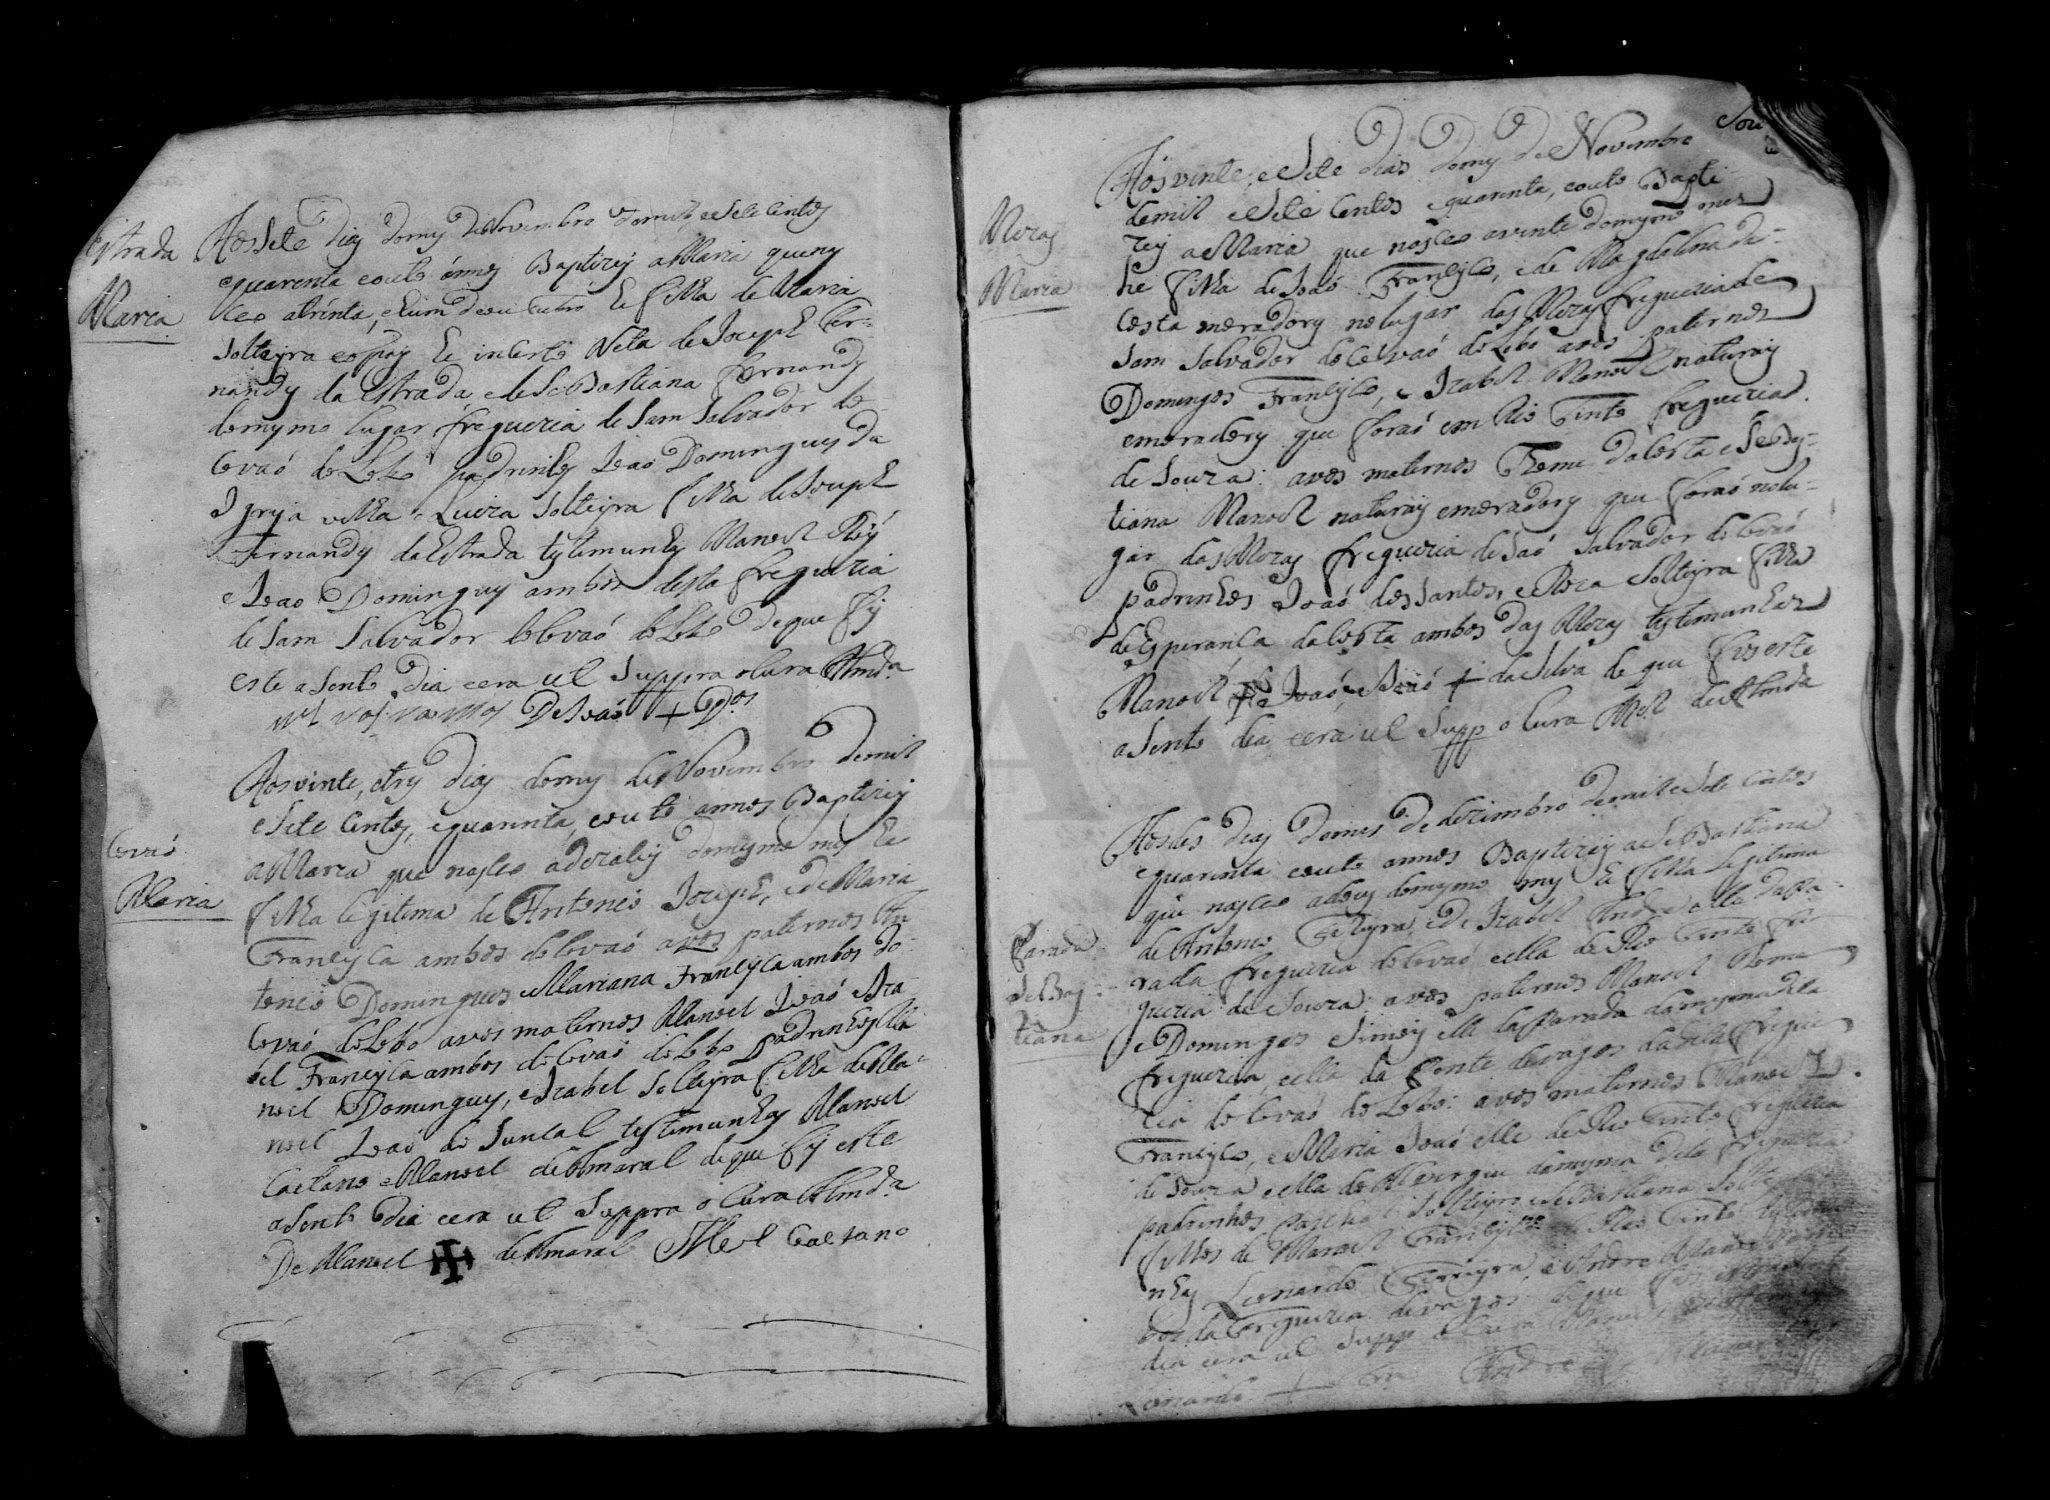 Estrada
Maria
Aos Sete dias do mes de Novembro de mil, e Sete Centos
e quarenta e outo annos Baptizey a Maria que nas
ceo a trinta, e hum de outubro he filha de Maria
Solteyra e o pay he incerto Neta de Joseph Fer-
nandes da Estrada e de Sebastiana fernandes
do mesmo lugar freguezia de Sam Salvador do
Covaó do Lobo padrinhos Joaó Domingues da
Igreja velha e Luiza Solteyra filha de Joseph
Fernandes da Estrada testemunhas Manoel
e Joao Domingues ambos desta freguezia
de Sam Salvador do Covaó do Lobo de que fis
este asento dia e era ut Suppra o Cura Almda
De Joaó + Dos
Covaó
Maria
Aos vinte, e tres dias do mes de Novembro de mil
e Sete Centos, e quarenta, e outo annos Baptizey
a Maria que nasceo a dezaseis do mesmo mes he
filha legitima de Antonio Joseph, e de Maria
Francisca ambos do Covaó avos paternos An
tonio Domingues e Mariana Francisca ambos do
Covaó do Lobo avos maternos Manoel Joaó e Iza-
bel Francisca ambos do Covaó do Lobo padrinhos Ma
noel Domingues, e Izabel Solteyra filha de Ma
noel Joaó do Juncal testemunhas Manoel
Caetano e Manoel do Amaral de que fis este
asento dia e era ut Suppra o Cura Almda
De Manoel + do Amaral Mel Caetano
Mozas
Maria
Aos vinte, e Sete dias do mes de Novembro
de mil e Sete Centos e quarenta, e outo Bapti
zey a Maria que nasceo a vinte do mesmo mes
he filha de Joaó Francisco, e de Magdalena da
Costa moradores no lugar das Mozas freguezia de
Sam Salvador do Covaó do Lobo avos paternos
Domingos Francisco, e Izabel Manoel naturais
e moradores que foraó em Rio Tinto freguezia
de Souza: avos maternos Thome da Costa e Sebas-
tiana Manoel naturais e moradores que foraó no lu-
gar das Mozas freguezia de Saó Salvador do Covaó
padrinhos Joaó dos Santos, e Roza Solteyra filha
de Esperanca da Costa ambos das Mozas testemunhas
Manoel Joaó, e Joaó + da Silva de que fis este
asento dia e era ut Supp o Cura Mel de Almda
Parada
Sebas-
tiana
Aos des dias do mes de dezimbro de mil e Sete Centos
e quarenta e outo annos Baptizey a Sebastiana
que nasceo a dous do mesmo mes he filha legitima
de Antonio e de Izabel André elle da Pa-
rada freguezia do Covaó e ella de Rio Tinto fre
guezia de Souza: avos paternos Manoel Thome
e Domingas Simois elle da Parada da mesma dita
freguezia, e ella da Fonte de vagos da dita fregue
zia do Covaó do Lobo: avos maternos Manoel
Francisco, e Maria Joaó elle de Rio Tinto freguezia
de Souza e ella do da mesma dita freguezia
padrinhos Paschoal Solteyro e Sebastiana Solteyra
filhos de Manoel Francisco de Rio Tinto testemu
nhas Leonardo e Andre Manoel
da Freguezia de vagos de que fis
dia e era ut Supp o Cura Manoel
+ Andre